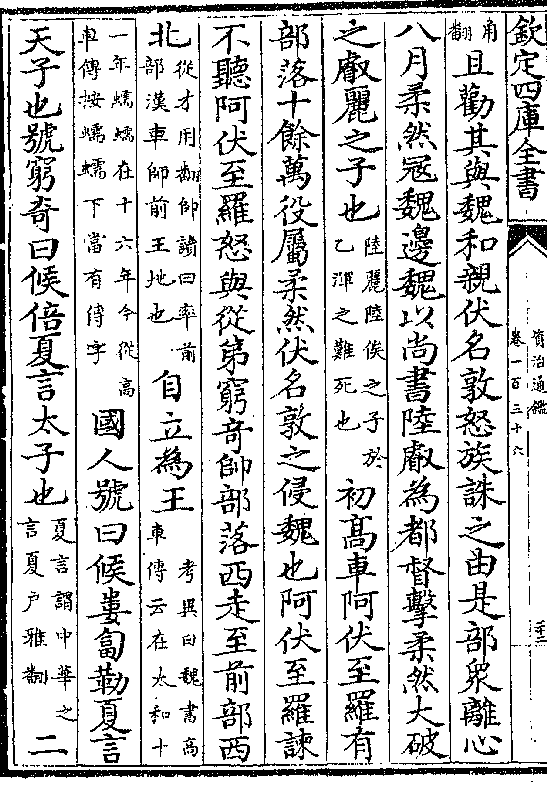 欽定四庫全書
資治通鑑
卷一百三十六
角翻且勸其與魏和親伏名敦怒族誅之由是部衆離心
八月柔然冦魏邊魏以尚書陸叡為都督擊柔然大破
之叡麗之子也陸麗陸俟之子於乙渾之難死也初髙車阿伏至羅有
部落十餘萬役屬柔然伏名敦之侵魏也阿伏至羅諫
不聽阿伏至羅怒與從弟窮竒帥部落西走至前部西
北從才用翻帥讀曰率前部漢車師前王地也自立為王考異曰魏書高車傳云在太和十
一年蠕蠕在十六年今從高車傳按蠕蠕下當有傳字國人號曰候婁匐勒夏言
天子也號窮竒曰候倍夏言太子也夏言謂中華之言夏户雅翻二